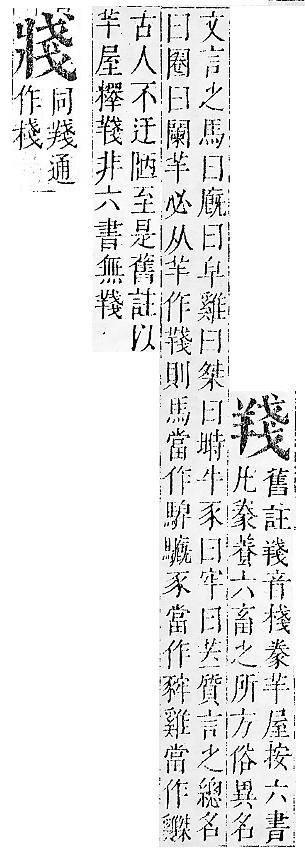 舊註音棧豢羊屋按六書
凡豢養六畜之所方俗異名
文言之馬曰廐曰皁雞曰桀曰塒牛豕曰牢曰苙質言之總名
曰圈曰闌羊必从羊作則馬當作豕當作雞當作
古人不迂陋至是舊註以
羊屋釋非六書無
同通
作棧